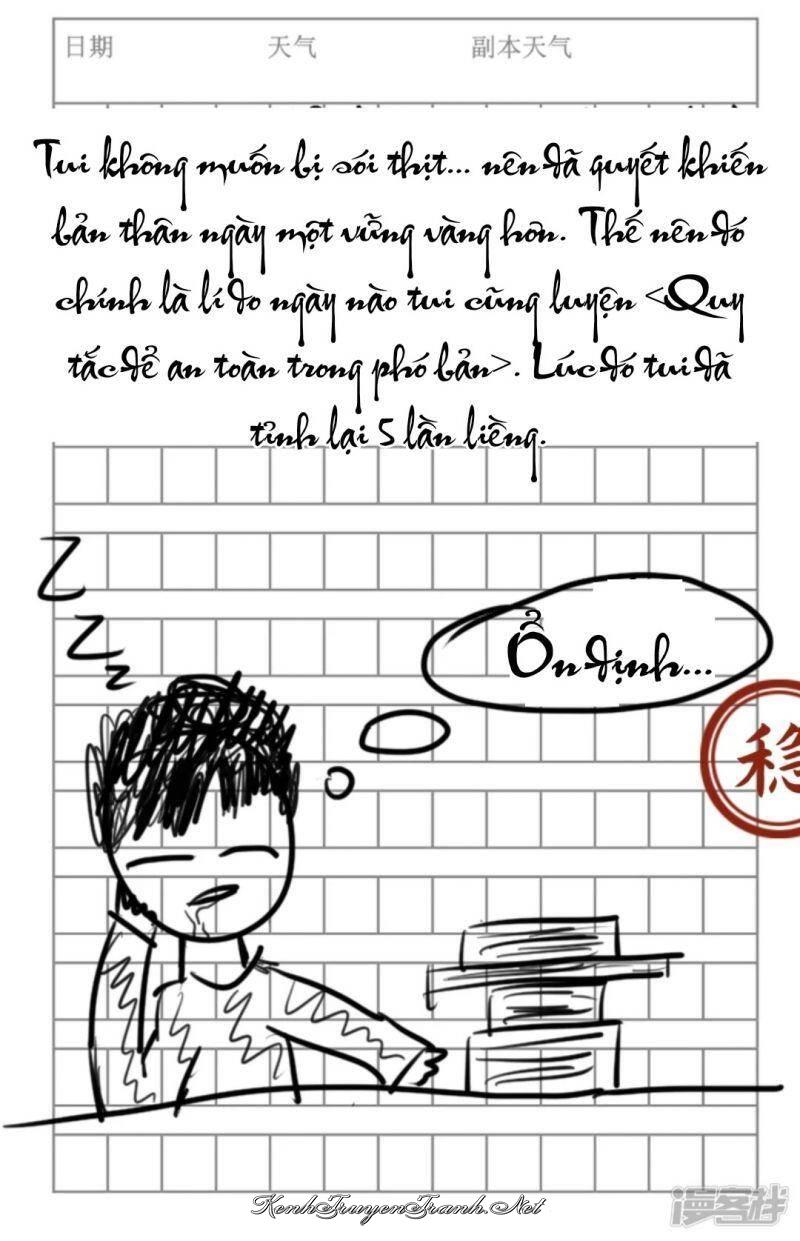 日期 天气 副本天气
Tui không muốn bị sói thịt... nên đã quyết khiến
bản thân ngày một vững vàng hơn. Thế nên đó
chính là lí do ngày nào tui cũng luyện <Quy
tắc để an toàn trong phó bản>. Lúc đó tui đã
tỉnh lại 5 lần liềng.
Z
Z
z
Ổn định...
稳
KenhTruyenTranh.Net
漫客栈